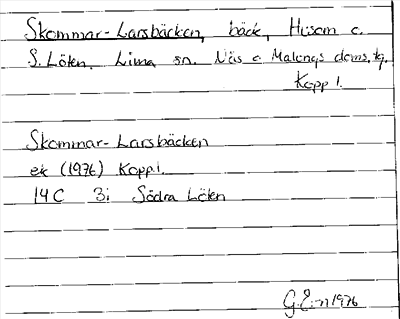 Skommar-Larsbäcken, bäck, Husom c.
S. Löten. Lima sn. Näs o Malungs doms. tg.
Kopp l.
Skommar-Larsbäcken
ek (1976) Kopp l.
14C 3i Södra Löten
G. E:n 1976